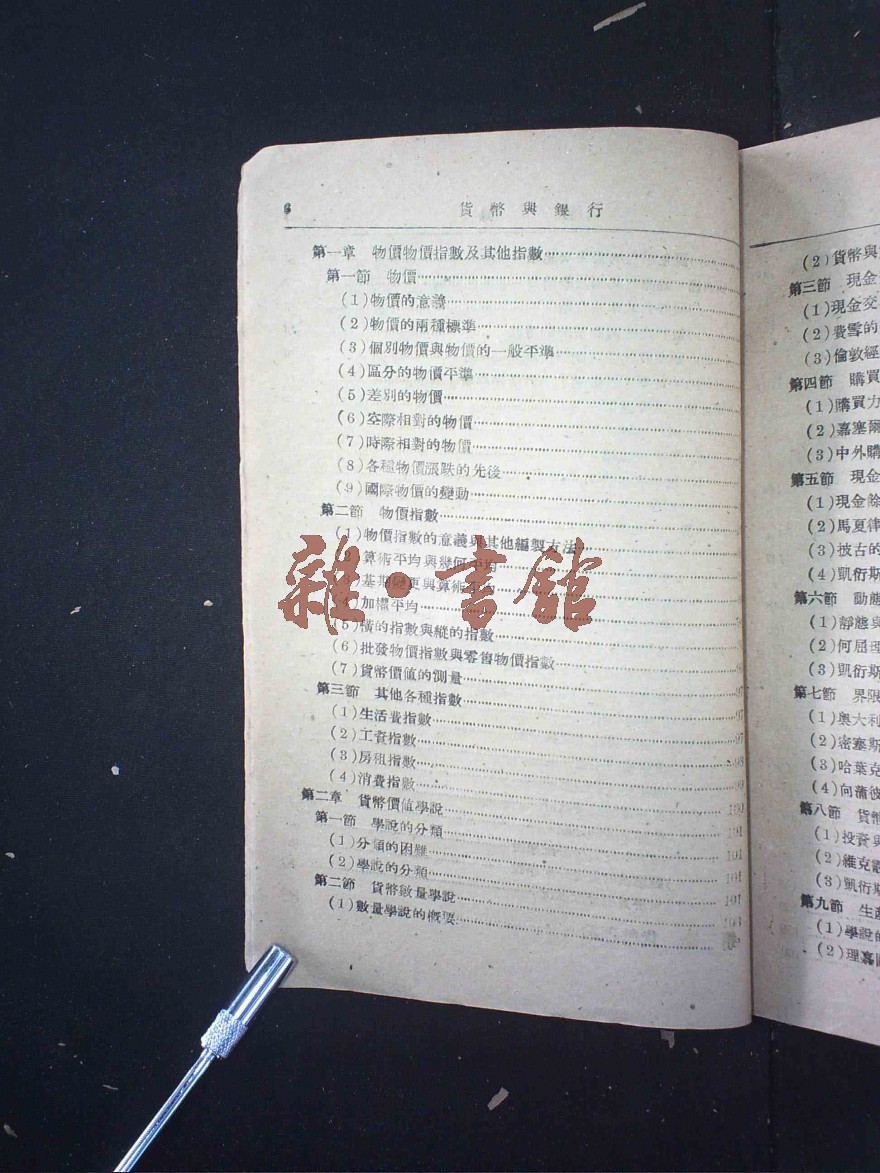 6 貨幣與銀行
第一章 物價物價指數及其他指數
第一節 物價
(1)物價的意義
(2)物價的兩種標準
(3)個別物價與物價的一般平準
(4)區分的物價平準
(5)差別的物價
(6)空際相對的物價
(7)時際相對的物價
(8)各種物價漲跌的先後
(9)國際物價的變動
第二節 物價指數
(1)物價指數的意義與其他編製方法
(2)算術平均與幾何平均
(3)基期變更與算術平均
(4)加權平均
(5)橫的指數與縱的指數
(6)批發物價指數與零售物價指數
(7)貨幣價值的測量
第三節 其他各種指數 97
(1)生活費指數 97
(2)工資指數 97
(3)房租指數 98
(4)消費指數 99
第二章 貨幣價值學說 100
第一節 學說的分類 101
(1)分類的困難 101
(2)學說的分類 101
第二節 貨幣數量學說 103
(1)數量學說的概要
雜·書館
(2)貨幣與
第三節 現金
(1)現金交
(2)費雪的
(3)倫敦經
第四節 購買
(1)購買力
(2)嘉塞爾
(3)中外購
第五節 現金
(1)現金除
(2)馬夏律
(3)披古的
(4)凱衍斯
第六節 動態
(1)靜態與
(2)何屈理
(3)凱衍斯
第七節 界限
(1)奧大利
(2)密塞斯
(3)哈葉克
(4)向蒲彼
第八節 貨幣
(1)投資與
(2)維克
(3)凱衍斯
第九節 生產
(1)學說的
(2)理嘉圖